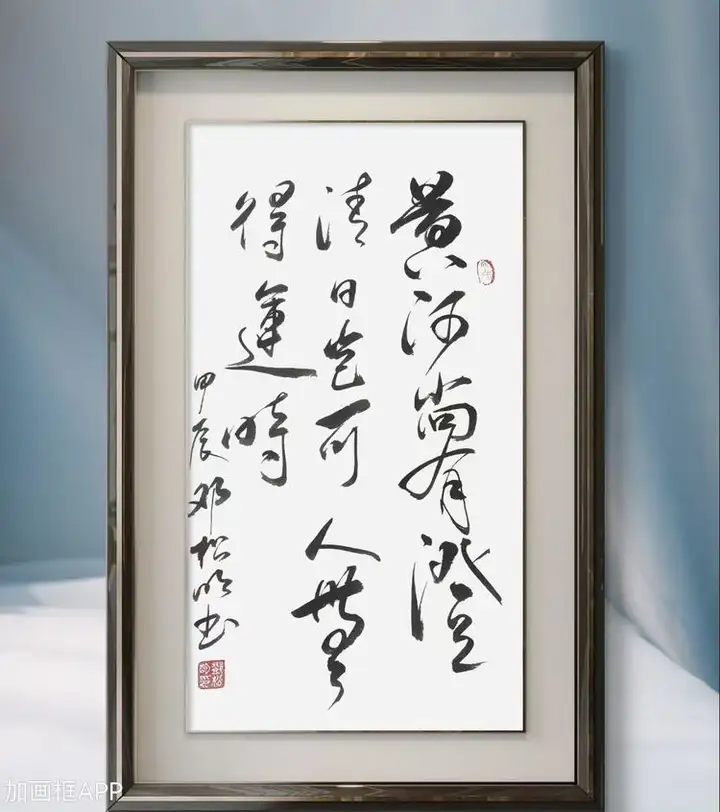 黄河尚有澄
清日岂可人無
得運時
甲辰邓松明书
加画框APP